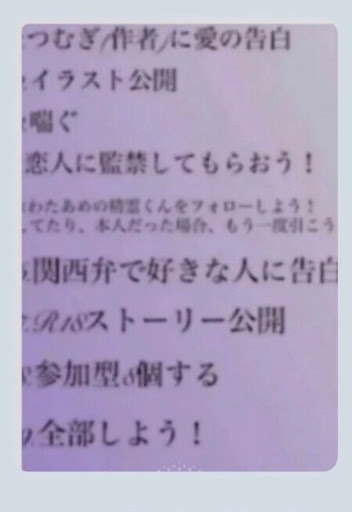 つむぎ(作者)に愛の告白
イラスト公開
喘ぐ
恋人に監禁してもらおう！
わたあめの精霊くんをフォローしよう！
してたり、本人だった場合、もう一度引こう
関西弁で好きな人に告白
7.R18ストーリー公開
8.参加型8個する
9.全部しよう！